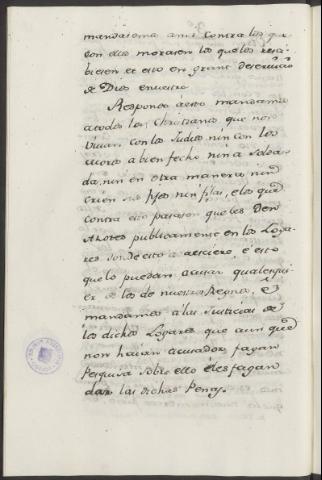 mandasemos anir contra los que
con ellos morasen los quelos resci-
biesen et esto era grant deservicio
de Dios e nuestro
Respondo aesto mandamos
atodos los Christianos que non
vivan con los Judios nin con los
moros a bien fecho nin a solda-
da, nin en otra manera nin
crien sus fijos nin fijas, e los que
contra esto pasasen queles den
Azotes publicamente en los Loga-
res donde esto acaeciere, e esto
que lo puedan acusar qualesqui-
er de los de nuestros Regnos, e
mandamos a las Justicias de
los dichos Logares que aun que
non haian acusador fagan
Pesquisa sobre ello e les fagan
dar las dichas Penas.